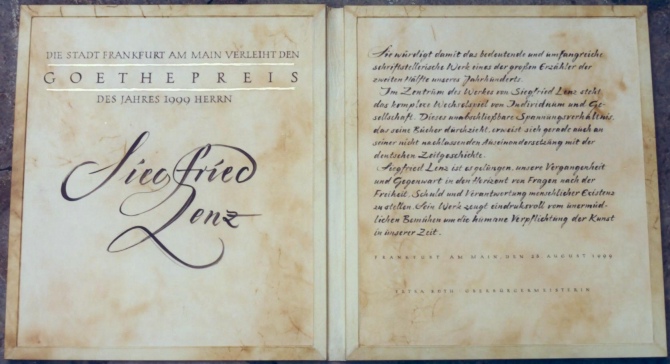 DIE STADT FRANKFURT AM MAIN VERLEIHT DEN
GOETHEPREIS
DES JAHRES 1999 HERRN
Siegfried
Lenz
Sie würdigt damit das bedeutende und umfangreiche
schriftstellerische Werk eines der großen Erzähler der
zweiten Hälfte unseres Jahrhunderts.
Im Zentrum des Werkes von Siegfried Lenz steht
das komplexe Wechselspiel von Individuum und Ge-
sellschaft. Dieses unabschließbare Spannungsverhältnis,
das seine Bücher durchzieht, erweist sich gerade auch an
seiner nicht nachlassenden Auseinandersetzung mit der
deutschen Zeitgeschichte.
Siegfried Lenz ist es gelungen, unsere Vergangenheit
und Gegenwart in den Horizont von Fragen nach der
Freiheit, Schuld und Verantwortung menschlicher Existenz
zu stellen. Sein Werk zeugt eindrucksvoll vom unermüd-
lichen Bemühen um die humane Verpflichtung der Kunst
in unserer Zeit.
FRANKFURT AM MAIN, DEN 28. AUGUST 1999
PETRA ROTH OBERBÜRGERMEISTERIN